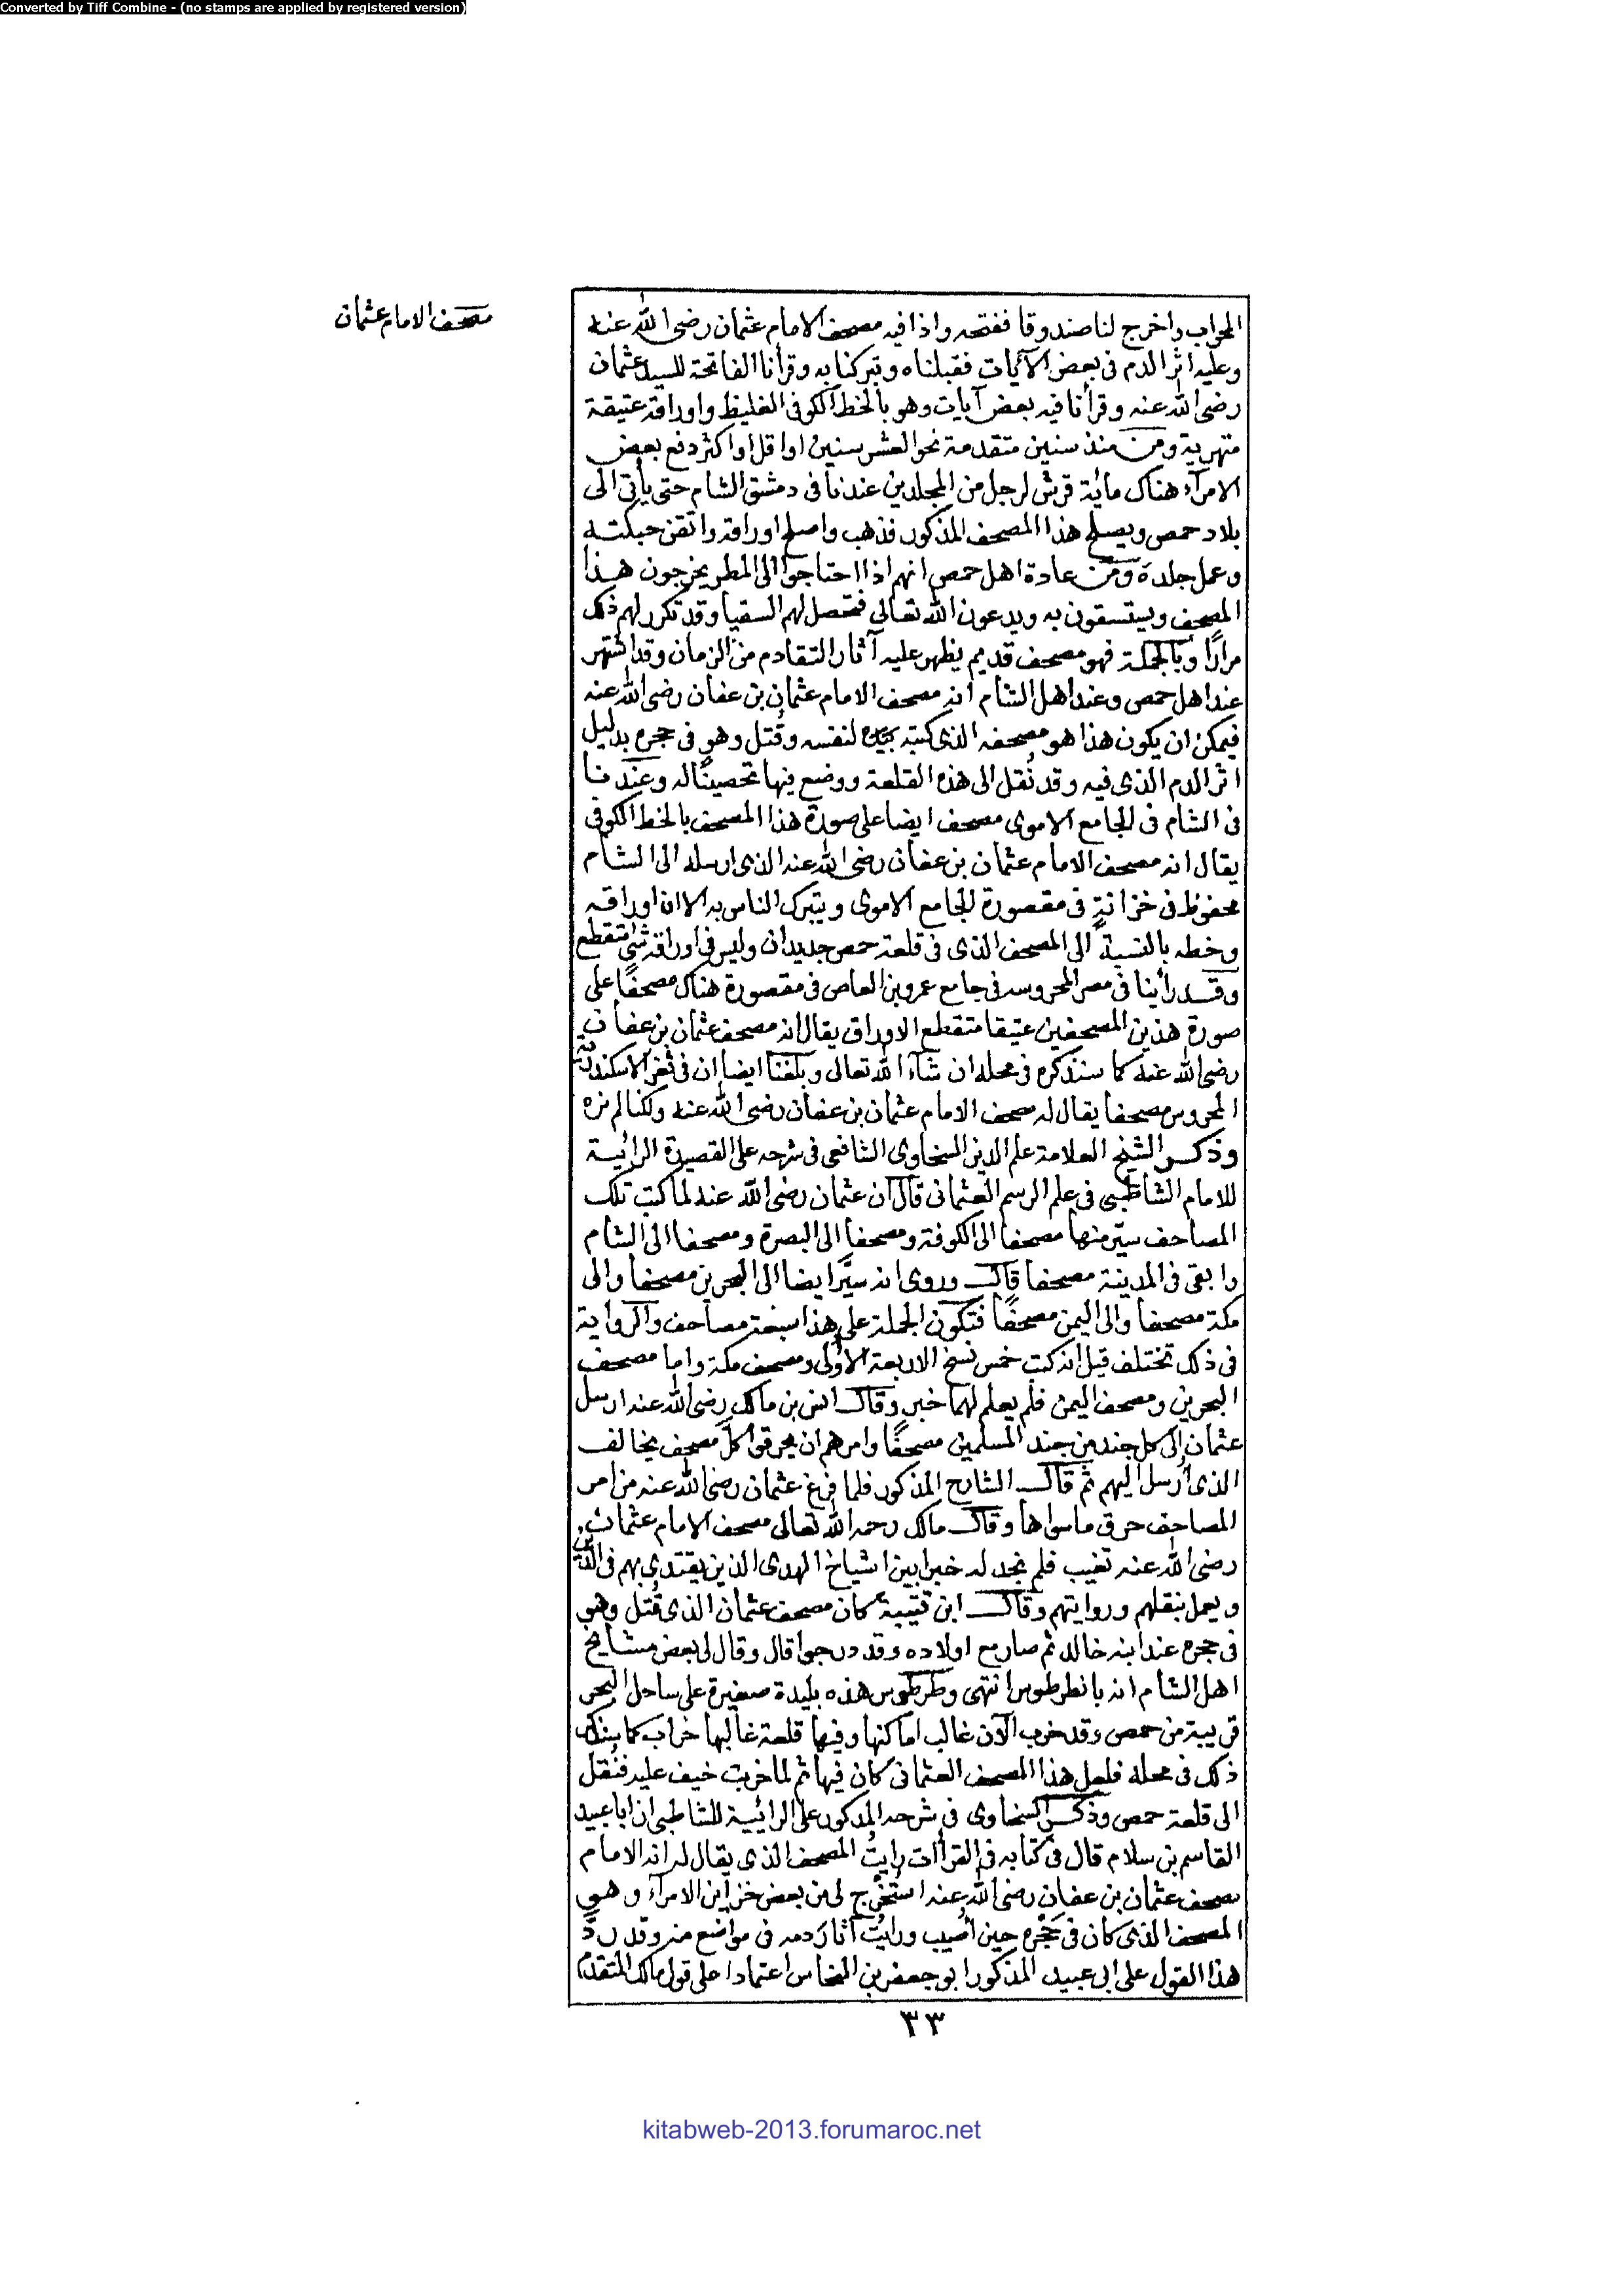 Converted by Tiff Combine - (no stamps are applied by registered version)
مصحف الامام عثمان
المحراب واخرج لنا صندوقا ففتحه واذا فيه مصحف الامام عثمان رضى الله عنه
وعليه اثر الدم فى بعض الآيات فقبلناه وتبركنا به وقرأنا الفاتحة للسيد عثمان
رضى الله عنه وقرأنا فيه بعض آيات وهو بالخط الكوفى الغليظ واوراقه عتيقة
متهرية ومن منذ سنين متقدمة نحو العشر سنين او اقل او اكثر دفع بعض
الامرآء هناك مائة قرش لرجل من المجلدين عندنا فى دمشق الشام حتى يأتى الى
بلاد حمص ويصلح هذا المصحف المذكور فذهب واصلح اوراقه واتقن حبكته
وعمل جلده ومن عادة اهل حمص انهم اذا احتاجوا الى المطر يخرجون هذا
المصحف ويستسقون به ويدعون الله تعالى فتحصل لهم السقيا وقد تكرر لهم ذلك
مرارًا وبالجملة فهو مصحف قديم يظهر عليه آثار التقادم من الزمان وقد اشتهر
عند اهل حمص وعند اهل الشام انه مصحف الامام عثمان بن عفان رضى الله عنه
فيمكن ان يكون هذا هو مصحفه الذى كتبه بيده لنفسه وقُتل وهو فى حجره بدليل
اثر الدم الذى فيه وقد نُقل الى هذه القلعة ووضع فيها تحصينًا له وعندنا
فى الشام فى الجامع الاموى مصحف ايضا على صورة هذا المصحف بالخط الكوفى
يقال انه مصحف الامام عثمان بن عفان رضى الله عنه الذى ارسله الى الشام
محفوظ فى خزانةٍ فى مقصورة الجامع الاموى ويتبرك الناس به الا ان اوراقه
وخطه بالنسبة الى المصحف الذى فى قلعة حمص جديدان وليس فى اوراقه شئ متقطع
وقد رأينا فى مصر المحروسه فى جامع عمرو بن العاص فى مقصورة هناك مصحفًا على
صورة هذين المصحفين عتيقا متقطع الاوراق يقال انه مصحف عثمان بن عفان
رضى الله عنه كما سنذكره فى محله ان شآء الله تعالى وبلغنا ايضا ان فى ثغر الاسكندرية
المحروس مصحفا يقال له مصحف الامام عثمان بن عفان رضى الله عنه ولكنا لم نره
وذكر الشيخ العلامة علم الدين السخاوى الشافعى فى شرحه على القصيدة الرائية
للامام الشاطبى فى علم الرسم العثمانى قال ان عثمان رضى الله عنه لما كتب تلك
المصاحف سيّر منها مصحفا الى الكوفة ومصحفا الى البصرة ومصحفا الى الشام
وابقى فى المدينة مصحفا قال وروى انه سيَّر ايضا الى البحرين مصحفا والى
مكة مصحفا والى اليمن مصحفًا فتكون الجملة على هذا سبعة مصاحف والرواية
فى ذلك تختلف قيل انه كتب خمس نسخ الاربعة الأولى ومصحف مكة واما مصحف
البحرين ومصحف اليمن فلم يعلم لهما خبر وقال انس بن مالك رضى الله عنه ارسل
عثمان الى كل جند من جند المسلمين مصحفًا وامرهم ان يحرقوا كلّ مصحف يخالف
الذى أرسل اليهم ثم قال الشارح المذكور فلما فرغ عثمان رضى الله عنه من امر
المصاحف حرق ما سواها وقال مالك رحمه الله تعالى مصحف الامام عثمان
رضى الله عنه تغيب فلم نجد له خبرا بين اشياخ الهدى الذين يقتدى بهم فى الدين
ويعمل بنقلهم وروايتهم وقال ابن قتيبة كان مصحف عثمان الذى قُتل وهو
فى حجره عند ابنه خالد ثم صار مع اولاده وقد درجوا قال وقال لى بعض مشايخ
اهل الشام انه بانطرطوس انتهى وطرطوس هذه بليدة صغيرة على ساحل البحر
قريبة من حمص وقد خرب الآن غالب اماكنها وفيها قلعة غالبها خراب كما سنذكر
ذلك فى محله فلعل هذا المصحف العثمانى كان فيها ثم لما خربت خيف عليه فنُقل
الى قلعة حمص وذكر السخاوى فى شرحه المذكور على الرائية للشاطبى ان ابا عبيد
القاسم بن سلام قال فى كتابه فى القرأات رايتُ المصحف الذى يقال له انه الامام
مصحف عثمان بن عفان رضى الله عنه استُخرج لى من بعض خزاين الامرآء وهو
المصحف الذى كان فى حَجْره حين أُصيب ورايتُ آثار دمه فى مواضع منه وقد ردَّ
هذا القول على ابى عبيد المذكور ابو جعفر بن النحاس اعتمادا على قول مالك المتقدم
٣٣
kitabweb-2013.forumaroc.net